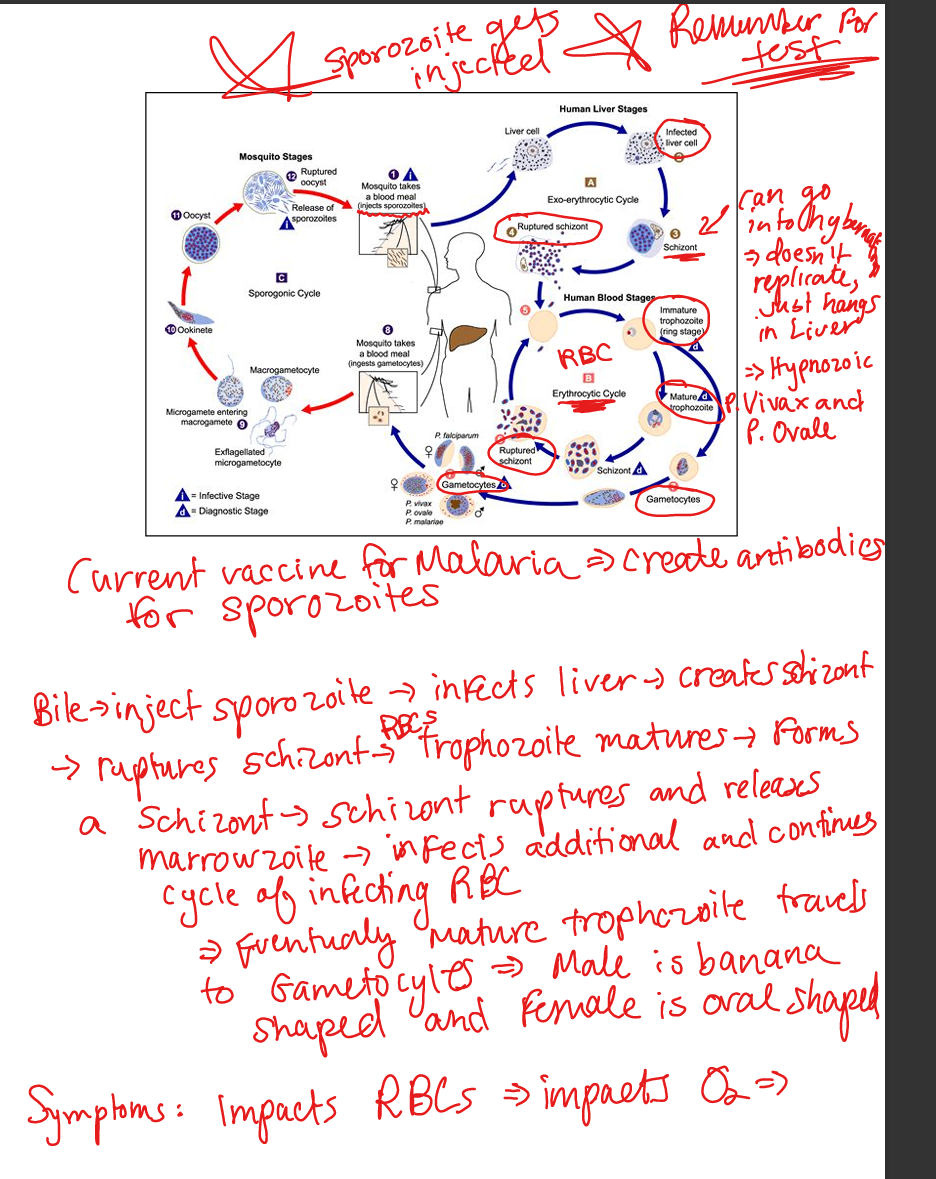 Sporozoite gets
injected
Remember for
test
Human Liver Stages
Liver cell
Infected
liver cell
2
Mosquito Stages
12 Ruptured
oocyst
1 i
Mosquito takes
a blood meal
(injects sporozoites)
Release of
sporozoites
i
11 Oocyst
A
Exo-erythrocytic Cycle
4 Ruptured schizont
3
Schizont
can go
into hybernate
⇒ doesn't
replicate,
just hangs
in Liver
⇒ Hypnozoic
P. Vivax and
P. Ovale
C
Sporogonic Cycle
Human Blood Stages
5
Immature
trophozoite
(ring stage)
d
10 Ookinete
8
Mosquito takes
a blood meal
(ingests gametocytes)
RBC
B
Erythrocytic Cycle
Macrogametocyte
Mature d
trophozoite
Microgamete entering
macrogamete 9
Exflagellated
microgametocyte
P. falciparum
♀
♂
6
Ruptured
schizont
Schizont d
7
Gametocytes d
7
Gametocytes
♀
♂
P. vivax
P. ovale
P. malariae
i = Infective Stage
d = Diagnostic Stage
Current vaccine for Malaria ⇒ create antibodies
for sporozoites
Bite → inject sporozoite → infects liver → creates schizont
→ ruptures schizont → RBCs trophozoite matures → forms
a Schizont → schizont ruptures and releases
marrowzoite → infects additional and continues
cycle of infecting RBC
⇒ Eventualy mature trophozoite travels
to Gametocytes ⇒ Male is banana
shaped and female is oval shaped
Symptoms: Impacts RBCs ⇒ impacts O2 ⇒